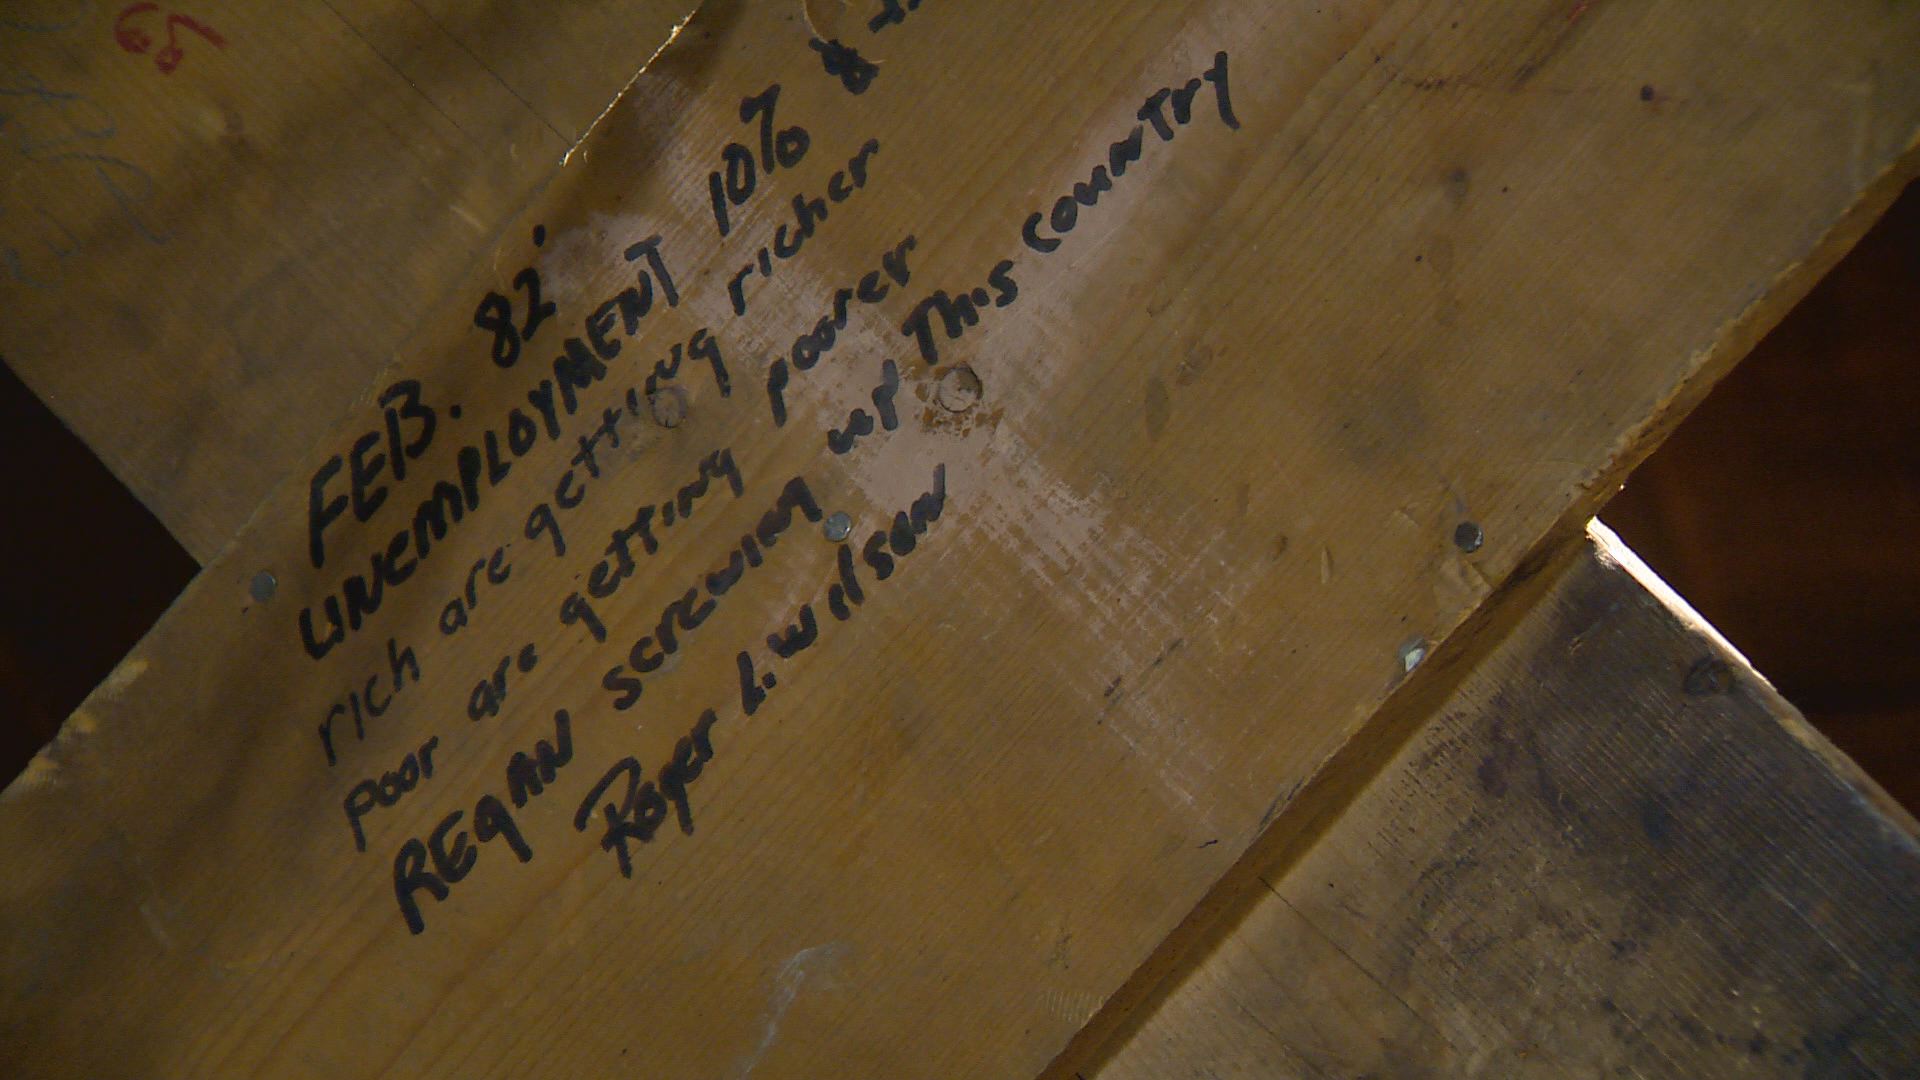 FEB. 82'
UNEMPLOYMENT 10% &
rich are getting richer
poor are getting poorer
REGAN screwing up This country
Roger L. Wilson